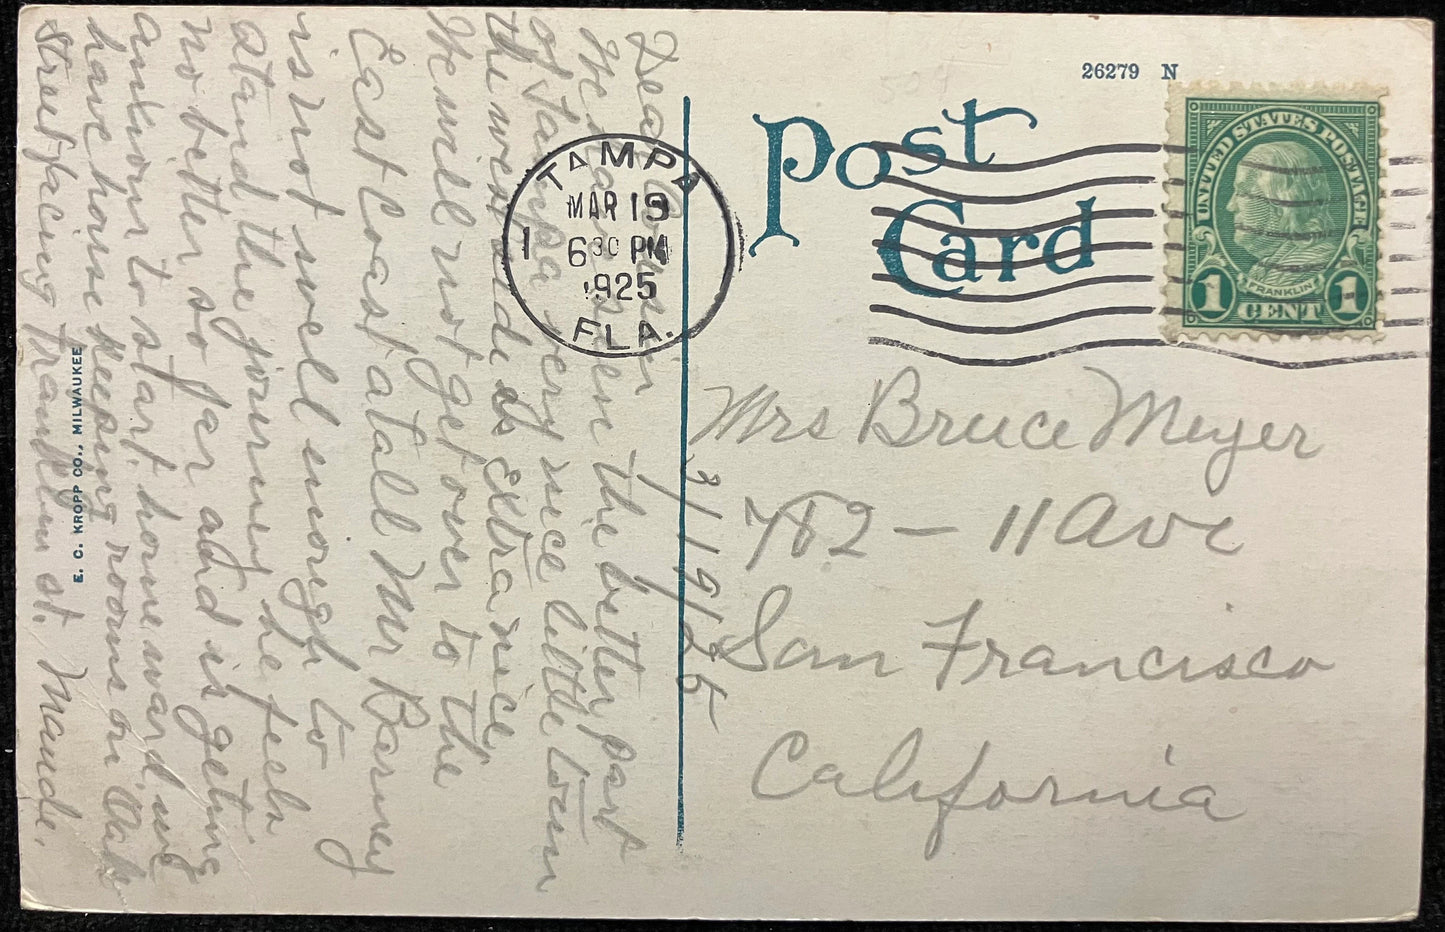 26279 N
Post
Card
TAMPA
MAR 19
1 630 PM
1925
FLA.
UNITED STATES POSTAGE
FRANKLIN
1 CENT 1
Mrs Bruce Meyer
782 - 11 Ave
San Francisco
California
3/19/25
Dear Cousin
We are in the better part
of Tampa very nice little town
the west side is extra nice
We will not get over to the
East Coast at all Mr Barney
is not well enough to
stand the journey he feels
no better so far and is geting
ankious to start homeward. we
have house keeping rooms on Oak
street facing Franklin st. Maude.
E. C. KROPP CO., MILWAUKEE